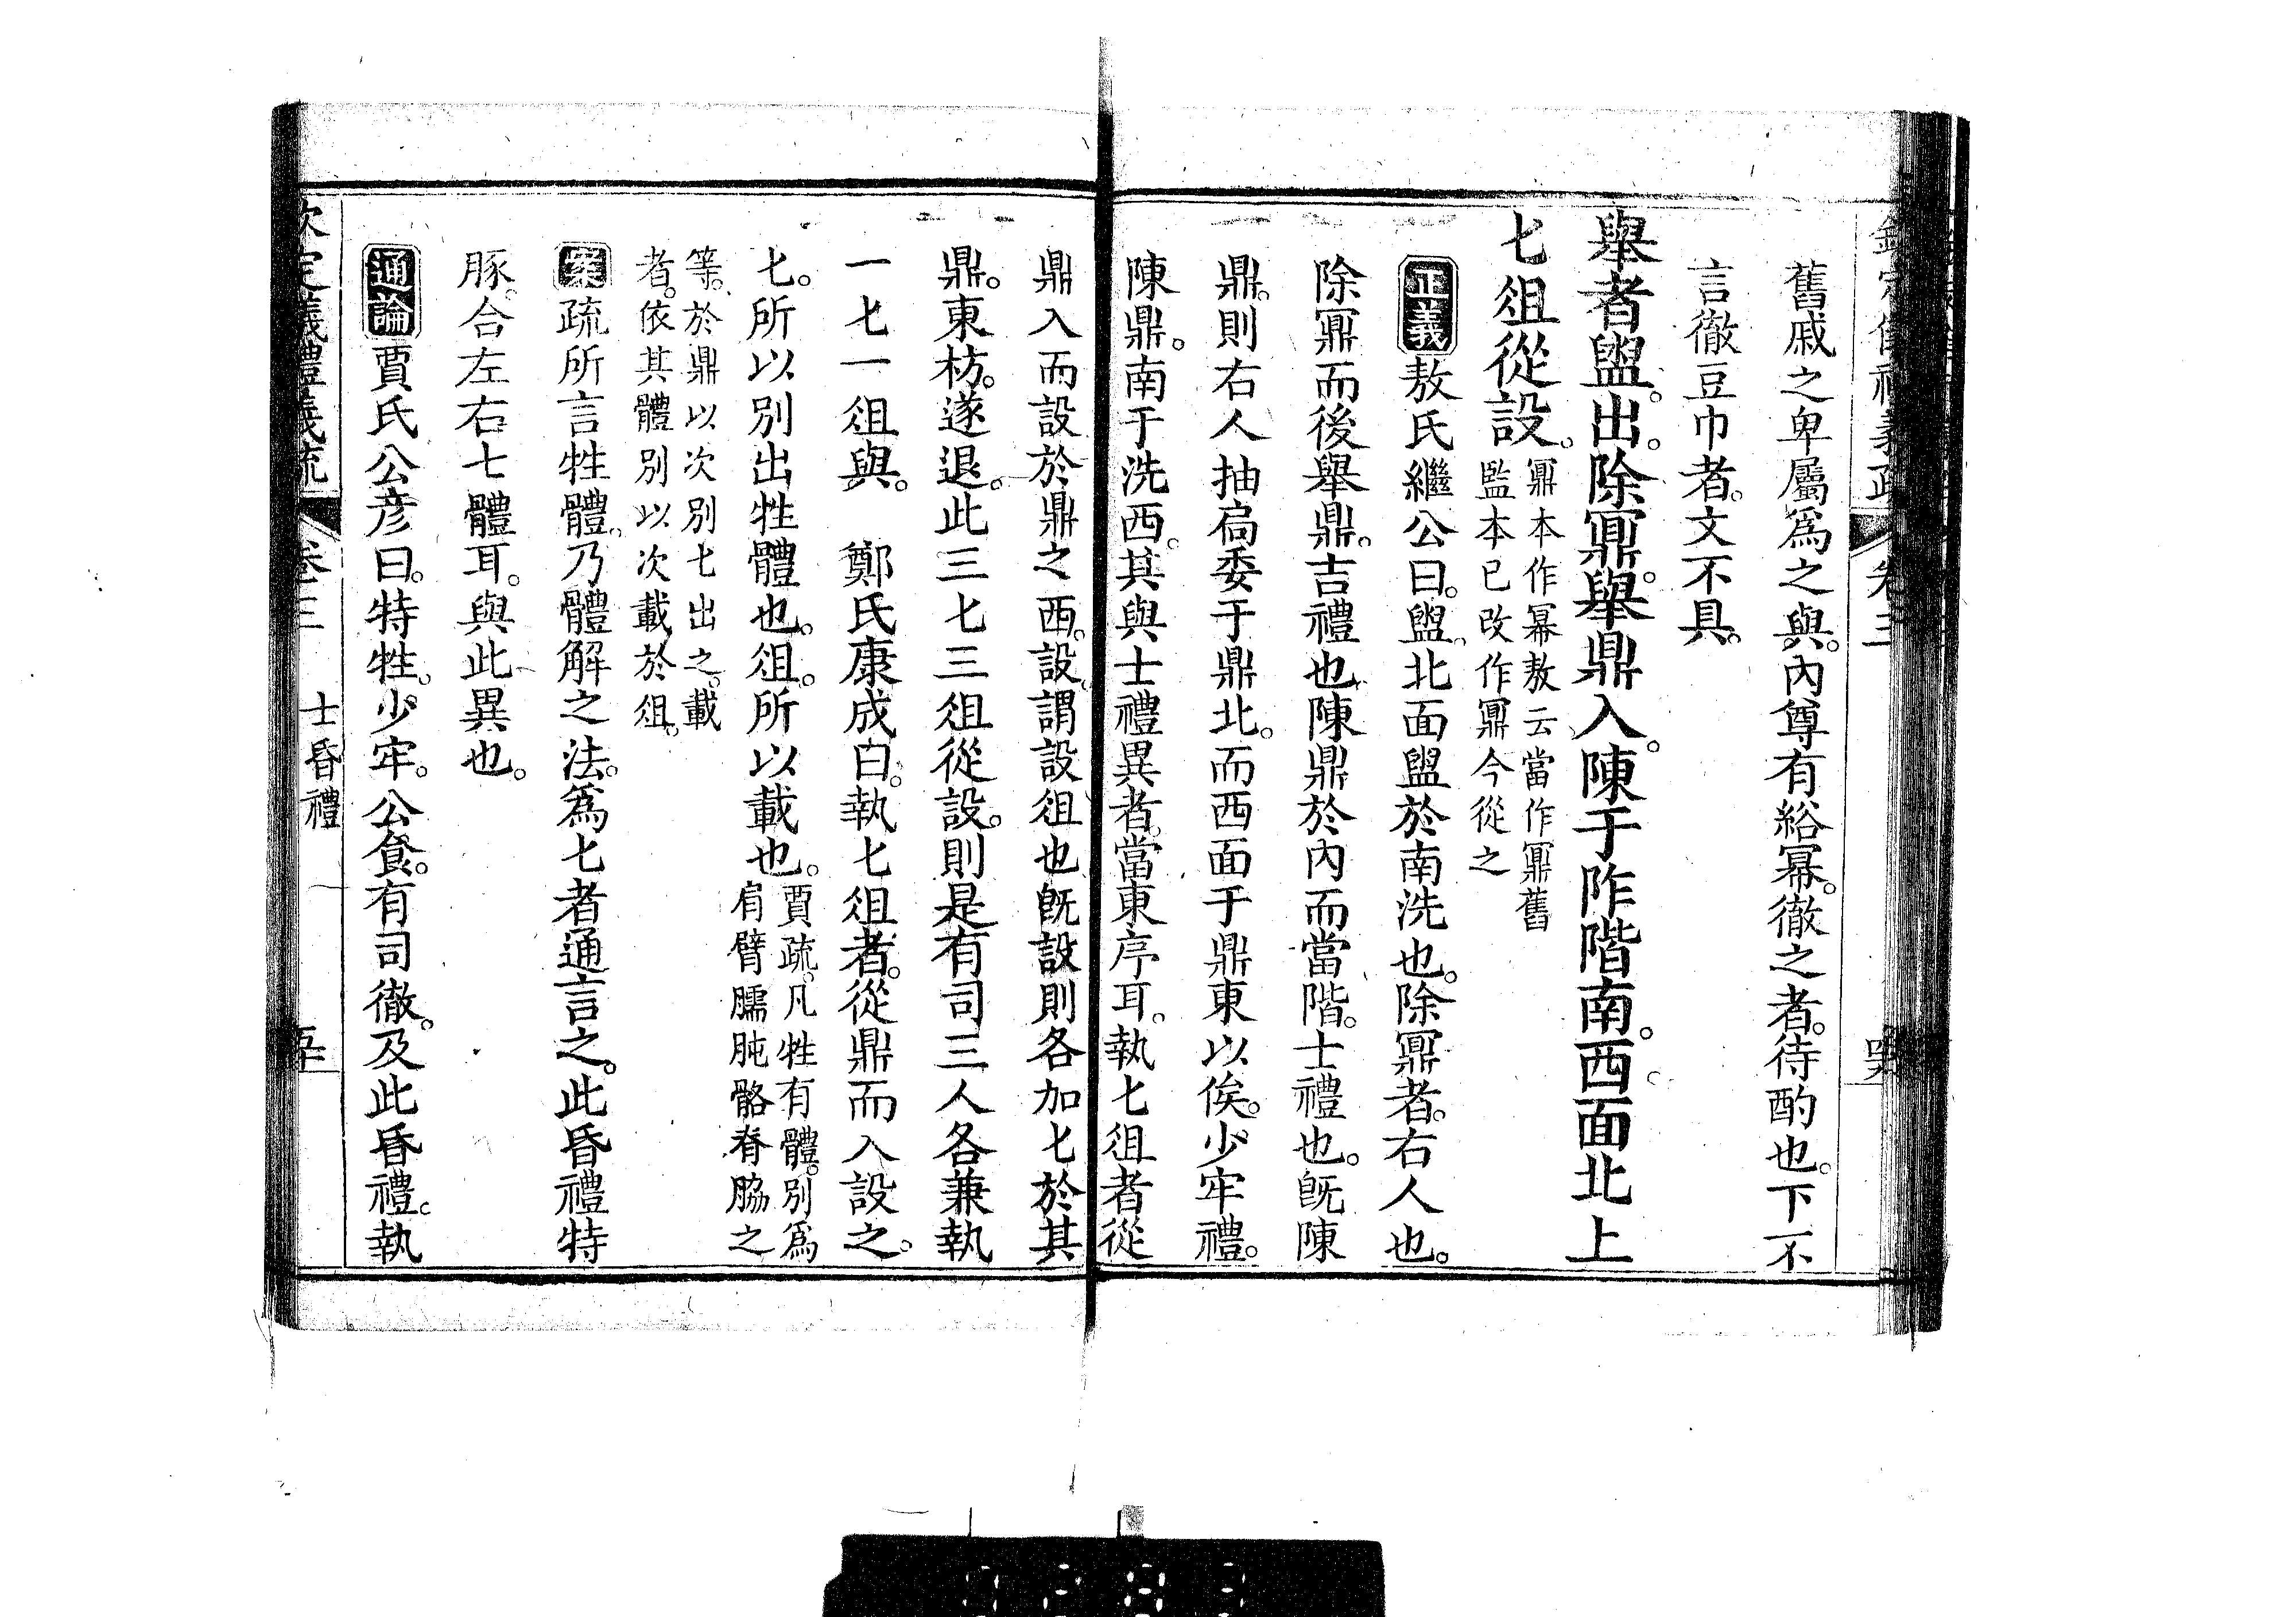 舊戚之卑屬爲之與。內尊有綌冪。徹之者。待酌也。下不
言徹豆巾者。文不具。
舉者盥。出。除鼏。舉鼎入。陳于阼階南。西面北上
匕俎從設。
鼏本作冪敖云當作鼏舊
監本已改作鼏今從之
正義敖氏繼公曰。盥。北面盥於南洗也。除鼏者。右人也。
除鼏而後舉鼎。吉禮也陳鼎於內而當階。士禮也。旣陳
鼎。則右人抽扃委于鼎北。而西面于鼎東以俟。少牢禮。
陳鼎。南于洗西。其與士禮異者。當東序耳。執匕俎者從
鼎入而設於鼎之西。設。謂設俎也旣設則各加匕於其
鼎。東枋。遂退。此三匕三俎從設。則是有司三人各兼執
一匕一俎與。　鄭氏康成曰。執匕俎者。從鼎而入設之。
匕。所以別出牲體也。俎。所以載也。
賈疏。凡牲有體。別爲
肩臂臑肫骼脊脇之
等。於鼎以次別匕出之。載
者。依其體別以次載於俎。
案疏所言牲體。乃體解之法。爲匕者通言之。此昏禮特
豚。合左右七體耳。與此異也。
通論賈氏公彦曰。特牲。少牢。公食。有司徹。及此昏禮。執
欽定儀禮義疏
卷三
士昏禮